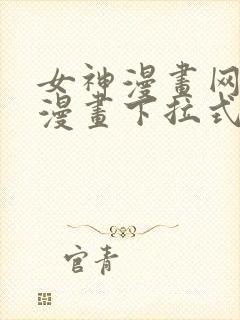 女神漫畫网
漫畫下拉式
官青